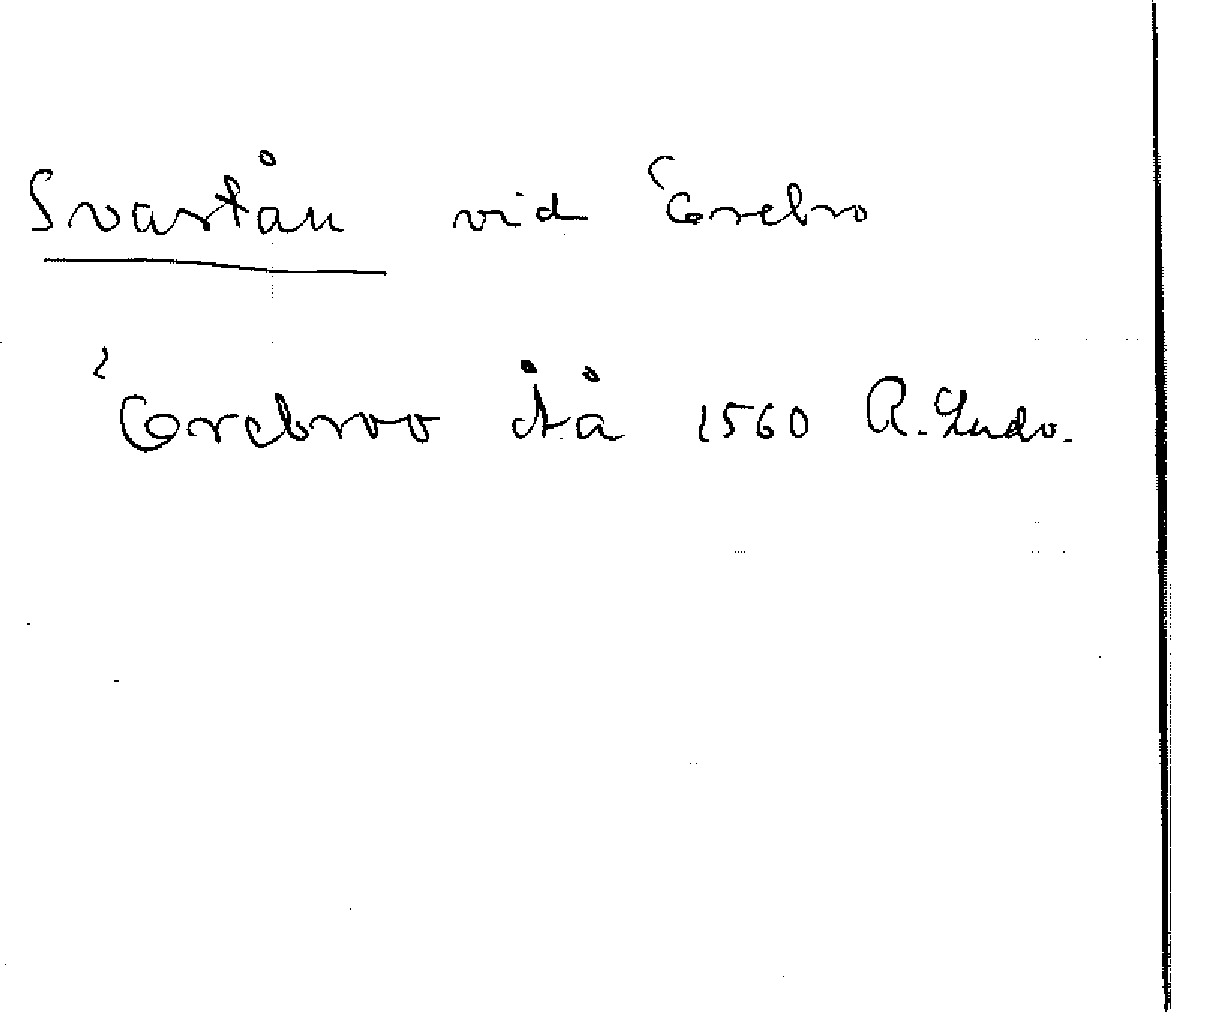 Svartån vid Örebro
Örebroo Åå 1560 R.